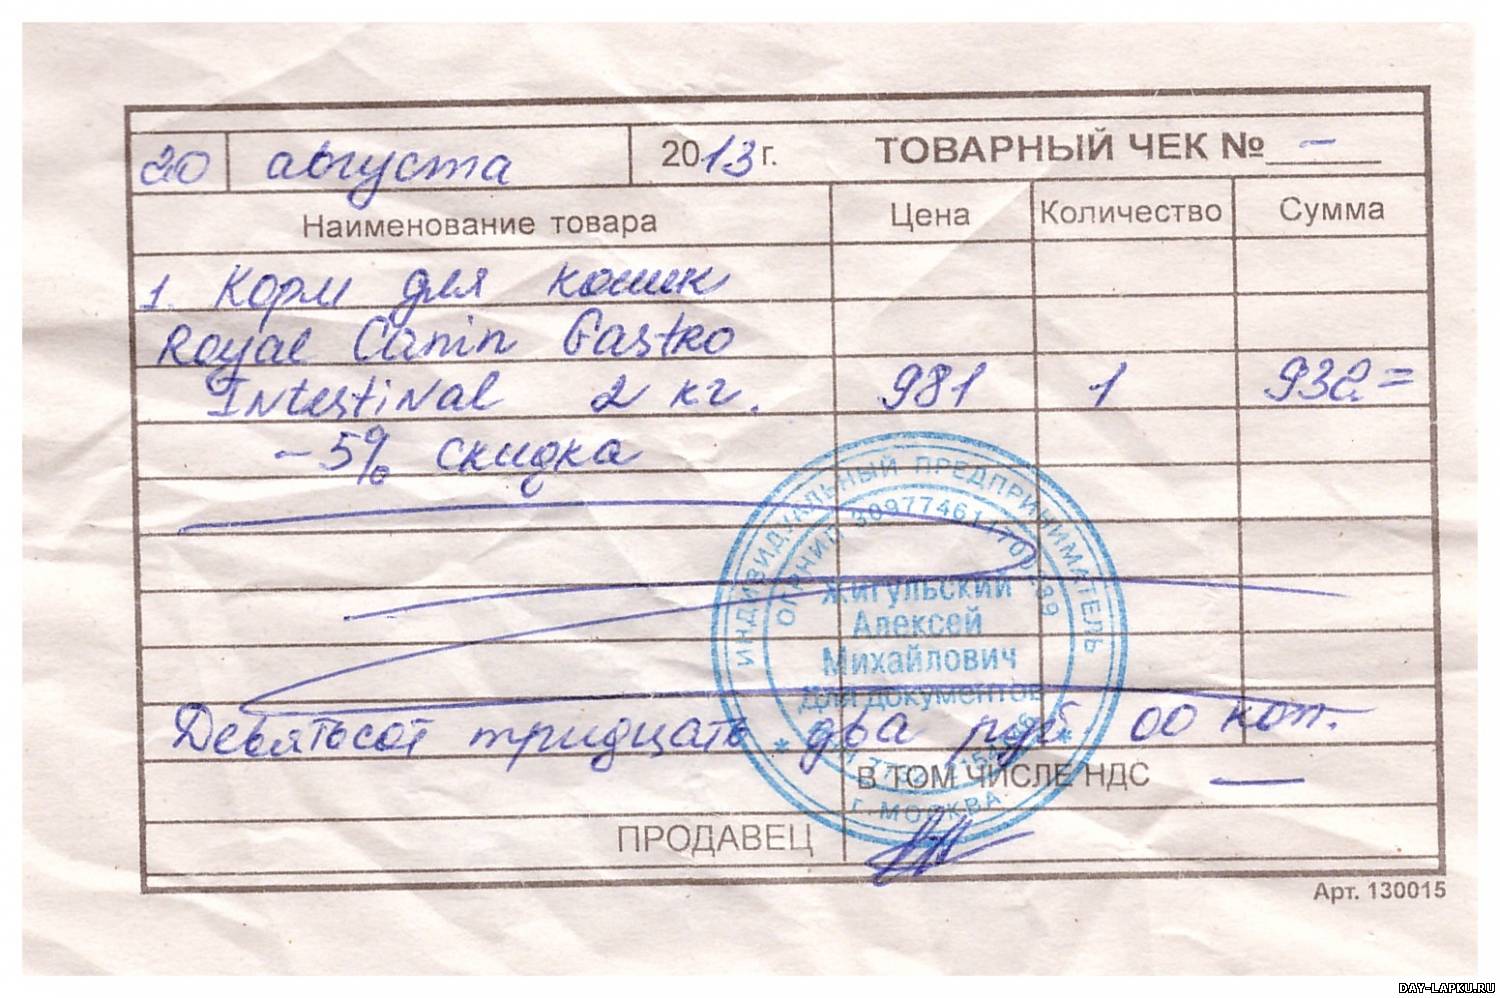 20 августа 2013 г. ТОВАРНЫЙ ЧЕК № –
Наименование товара Цена Количество Сумма
1. Корм для кошек
Royal Canin Gastro
Intestinal 2 кг. 981 1 932=
–5% скидка
ИНДИВИДУАЛЬНЫЙ ПРЕДПРИНИМАТЕЛЬ
ОГРНИП
Жигульский
Алексей
Михайлович
Для документов
г. МОСКВА
Девятьсот тридцать два руб. 00 коп.
В ТОМ ЧИСЛЕ НДС —
ПРОДАВЕЦ
Арт. 130015
DAY-LAPKU.RU